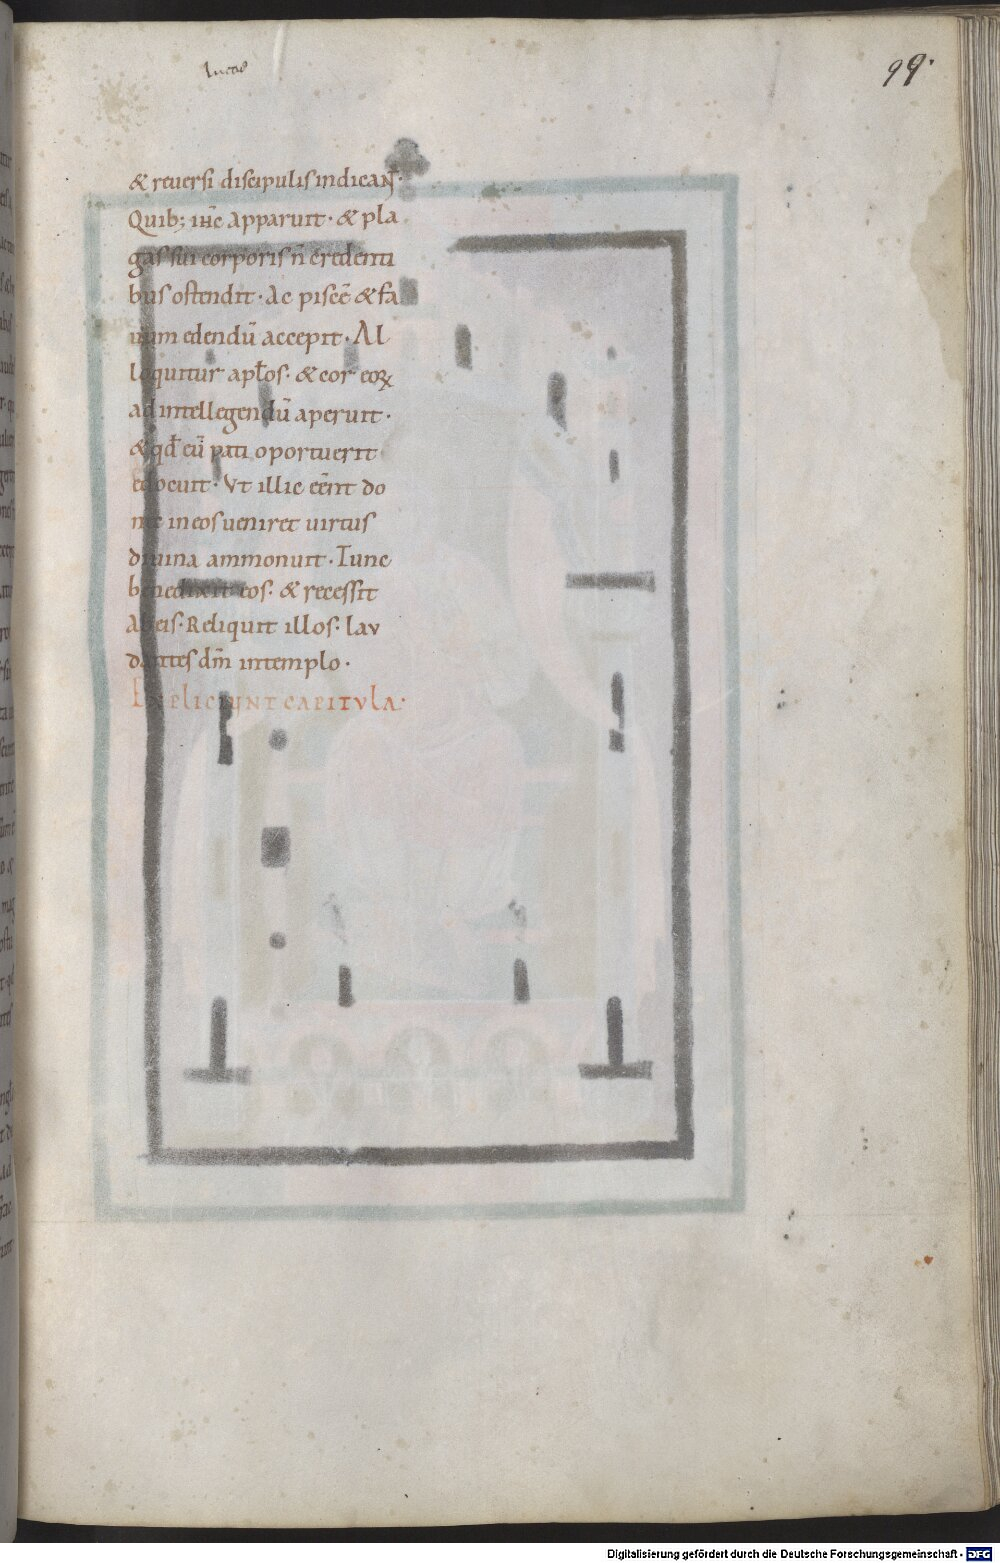 lucas
99.
& reuersi discipulis indicaN̄.
Quib; ihc̄ apparuit. & pla
gas sui corporis n̄ credenti
bus ostendit. Ac piscē & fa
uum edendū accepit. Al
loquitur apl̄os. & cor eoꝝ
ad intellegendū aperuit.
& qd̄ eū pati oportuerit
edocuit. Vt illic eēnt do
nec in eos ueniret uirtus
diuina ammonuit. Tunc
benedixit eos. & recessit
ab eis. Reliquit illos. lau
dantes dm̄ in templo.
EXPLICIUNT CAPITVLA.
Digitalisierung gefördert durch die Deutsche Forschungsgemeinschaft - DFG